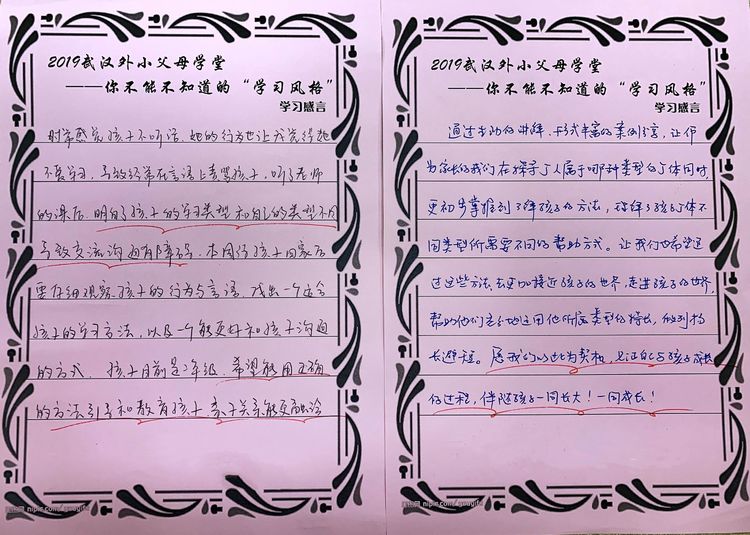 2019武汉外小父母学堂
——你不能不知道的“学习风格”
学习感言
时常感觉孩子不听话，她的行为也让我觉得她
不爱学习，导致经常在言语上责骂孩子，听了老师
的课后，明白了孩子的学习类型和自己的类型不同
导致交流沟通有障碍，本周待孩子回家后
要仔细观察孩子的行为与言语，找出一个适合
孩子的学习方法，以及一个能更好和孩子沟通
的方式。孩子目前是2年级，希望能用正确
的方法引导和教育孩子 亲子关系能更融洽
昵图网 nipic.com/
2019武汉外小父母学堂
——你不能不知道的“学习风格”
学习感言
通过老师的讲解、形式丰富的案例分享，让作
为家长的我们在探寻个人属于哪种类型的个体同时，
更初步掌握到了解孩子的方法，理解了孩子个体不
同类型所需要不同的帮助方式。让我们也希望通
过这些方法去更加接近孩子的世界，走进孩子的世界，
帮助他们充分地运用他所属类型的特长，做到扬
长避短。愿我们以此为契机，见证自己与孩子成长
的过程，伴随孩子一同长大！一同成长！
昵图网 nipic.com/